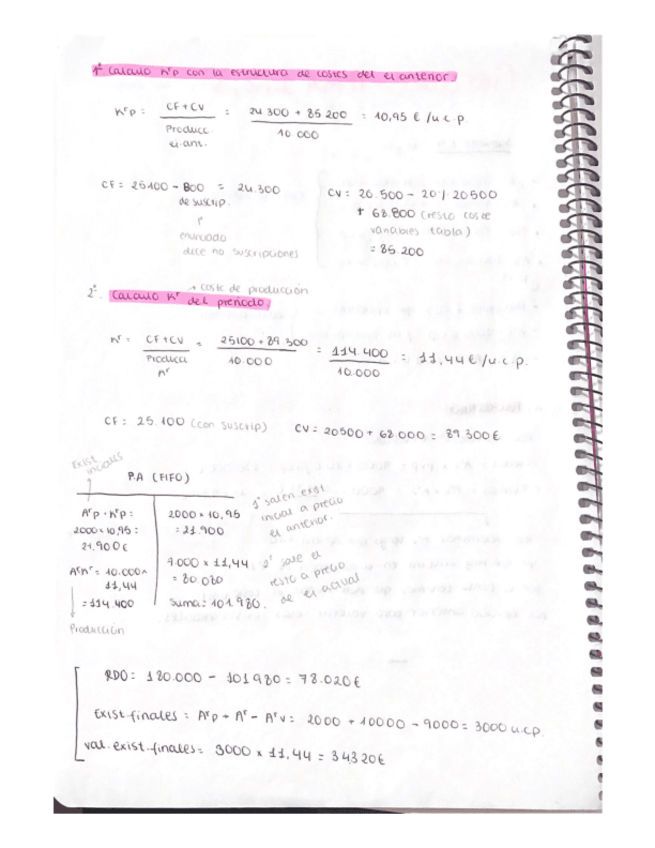 1º Calculo KʳP con la estructura de costes del ej anterior.
KʳP = CF+CV / Produce. ej.ant. = 24.300 + 85.200 / 10.000 = 10,95 € /u.c.p.
CF = 25100 - 800 = 24.300
de suscrip.
↑
enunciado
dice no suscripciones
CV = 20.500 - 20% 20500
+ 68.800 (resto coste
variables tabla)
= 85.200
→ coste de producción
2º. Calculo Kʳ del periodo
Kʳ = CF+CV / Producc. Aʳ = 25100 + 89.300 / 10.000 = 114.400 / 10.000 = 11,44 €/u.c.p.
CF = 25.100 (con suscrip) CV = 20500 + 68.000 = 89.300 €
Exist iniciales
P.A (FIFO)
AʳP · KʳP =
2000 × 10,95 =
21.900 €
AʳKʳ = 10.000 ×
11,44
= 114.400
↓
Producción
2000 × 10,95
= 21.900
9.000 × 11,44
= 80 080
Suma: 101.980.
1º salen exist
inicial a precio
ej anterior.
2º sale el
resto a precio
de ej actual
RDO: 180.000 - 101980 = 78.020 €
Exist.finales = AʳP + Aʳ - AʳV = 2000 + 10000 - 9000 = 3000 u.c.p.
Val.exist.finales = 3000 × 11,44 = 34320 €